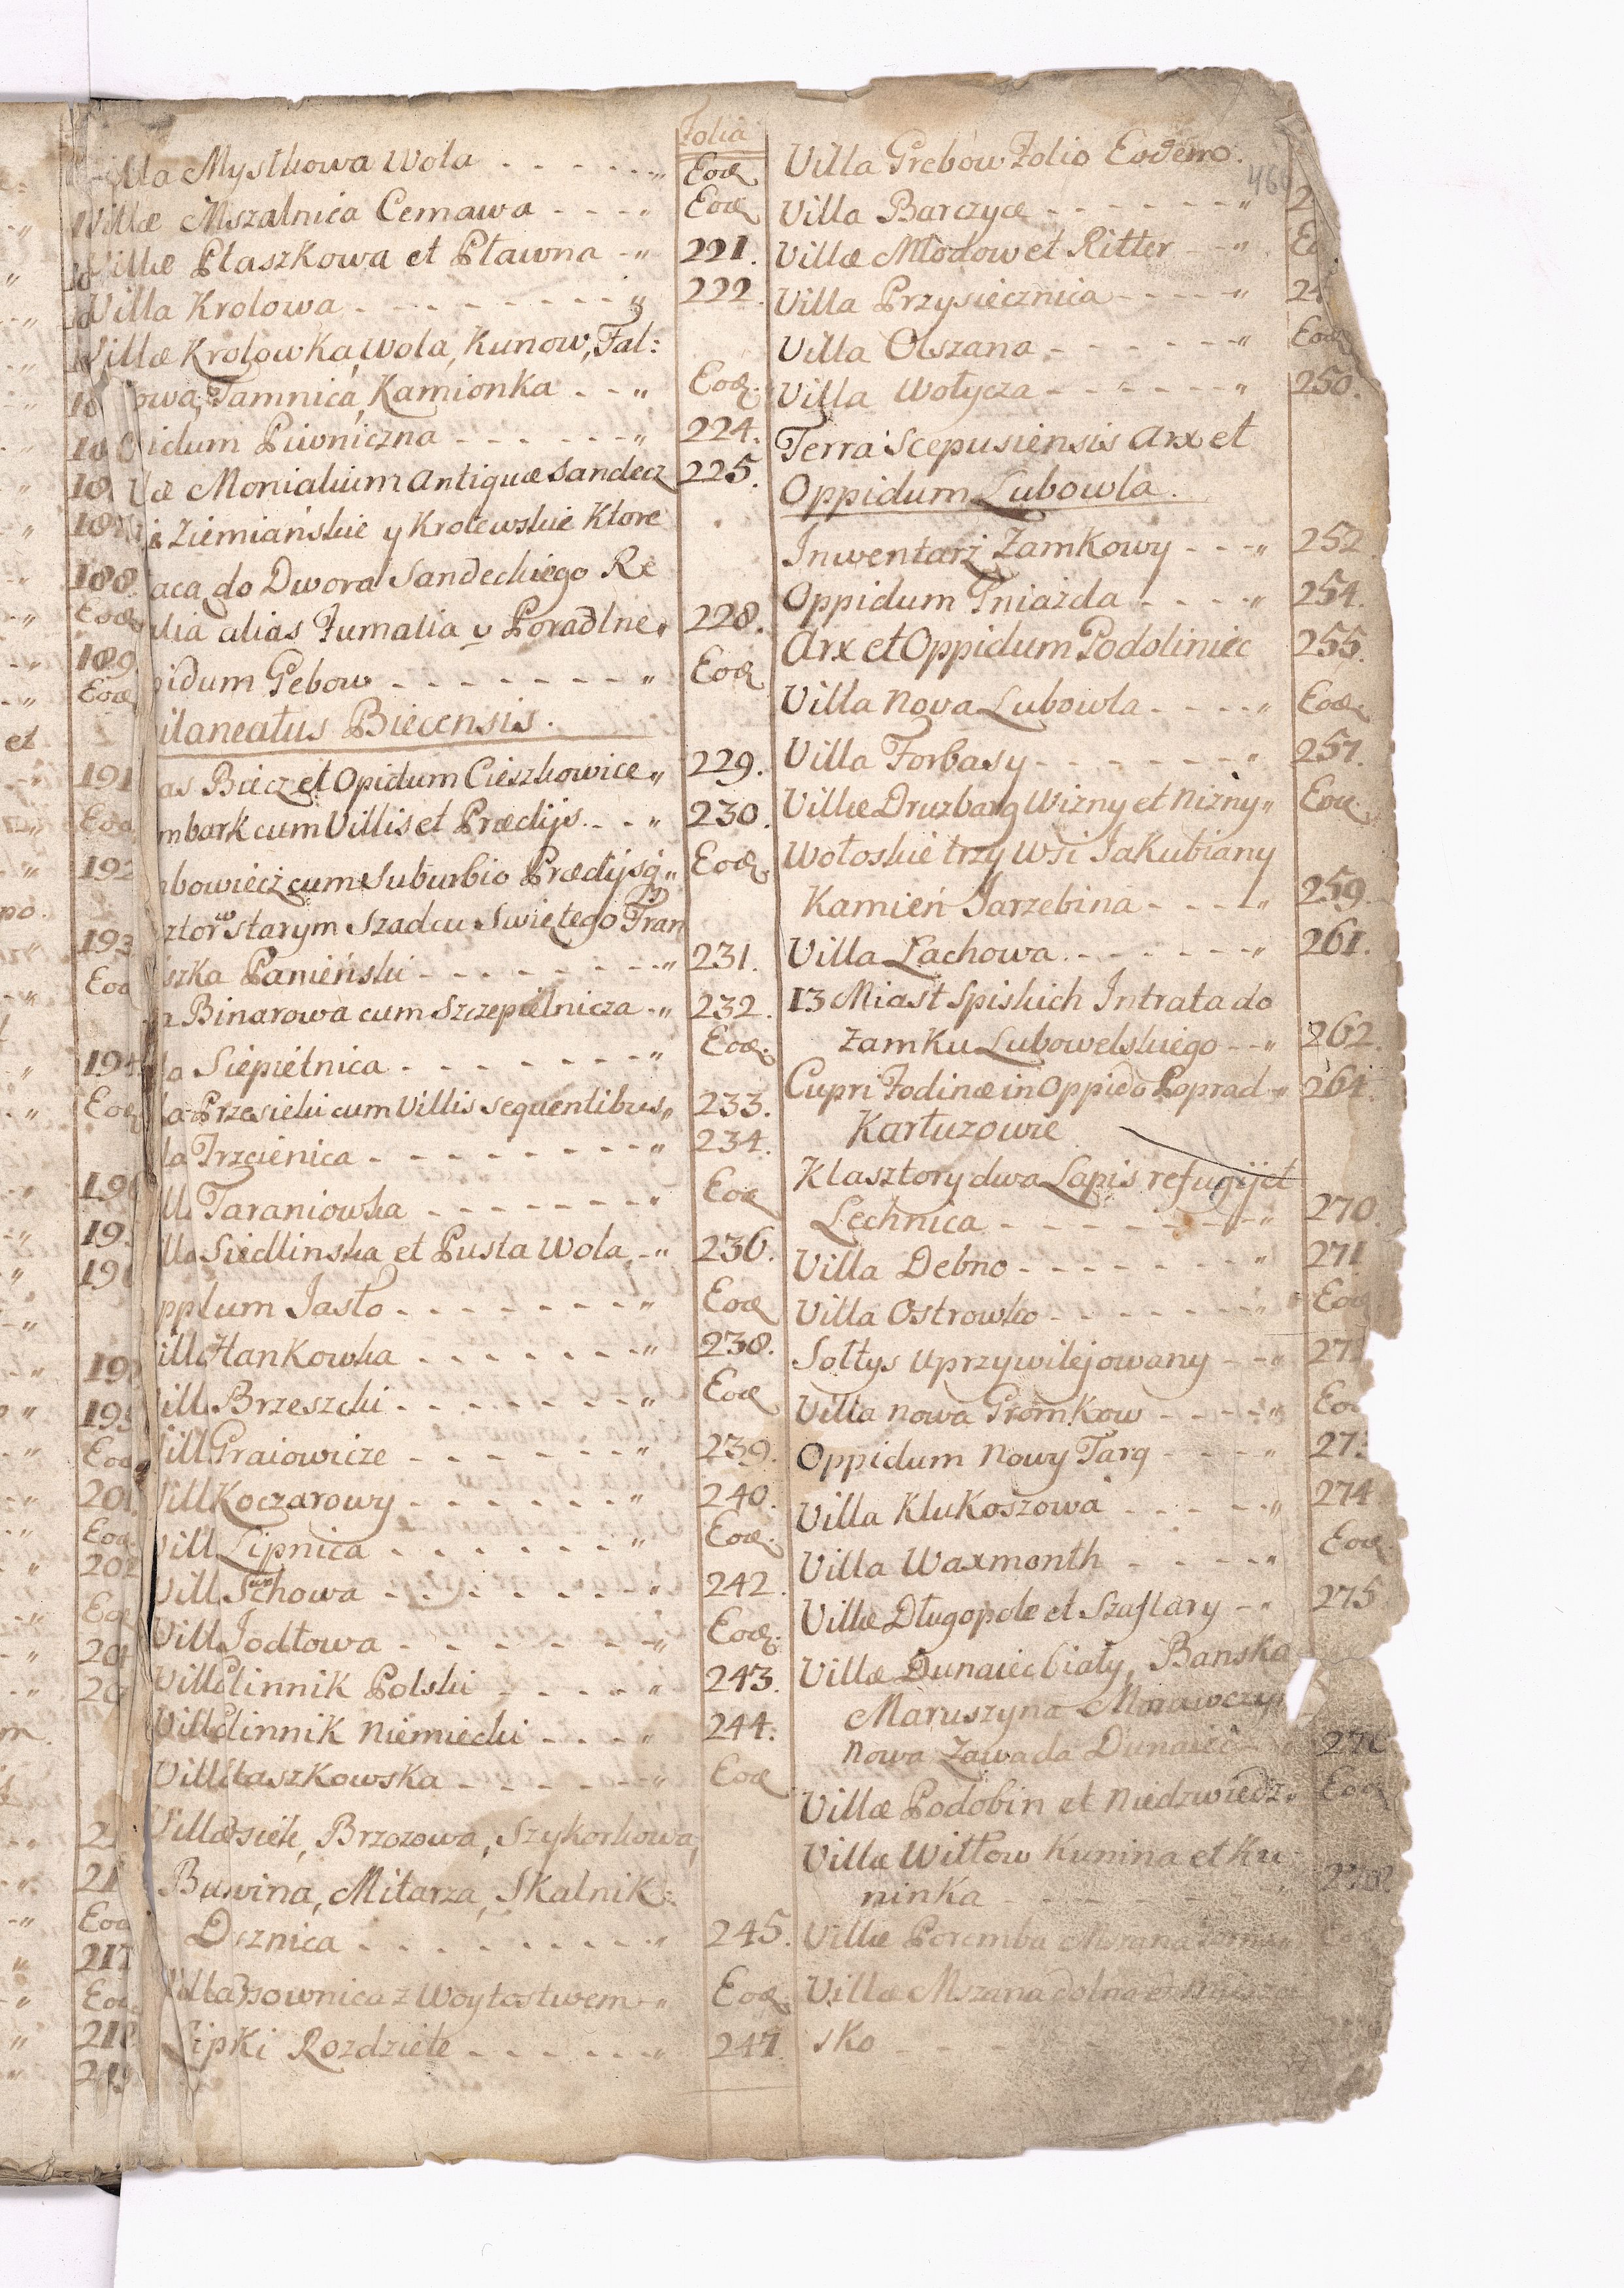 Folia
illa Mystkowa Wola - - - - - „ Eod.
Villæ Mszalnica Cemawa - - - „ Eod.
Villæ Ptaszkowa et Ptawna - „ 221.
Villa Krolowa - - - - - - - - „ 222.
Villæ Krolowka, Wola, Kunow, Fal:
owa, Jamnica, Kamionka - - „ Eod.
idum Piwniczna - - - - - - „ 224.
æ Monialium Antiquæ Sandecz 225.
Ziemiańskie y Krolewskie Ktore
aca do Dwora Sandeckiego Re
lia alias Fumalia y Poradlne „ 228.
idum Gebow - - - - - - - - „ Eod.
itaneatus Biecensis.
as Biecz et Opidum Cieszkowice „ 229.
mbark cum Villis et Prædijs. - - „ 230.
bowiecz cum Suburbio Prædijsq „ Eod.
sztor w starym Szadcu Swiętego Fran
iszka Panieński - - - - - - - - „ 231.
a Binarowa cum Szczepielnicza - „ 232.
la Siepietnica - - - - - - - „ Eod.
la Przesieki cum Villis sequentibus „ 233.
la Trzcienica - - - - - - - - „ 234.
ll. Taraniowka - - - - - - - „ Eod
lla Siedlinska et Pusta Wola - „ 236.
ppidum Jasło - - - - - - - „ Eod
ill Hankowka - - - - - - - „ 238.
ill Brzeszcki - - - - - - - - „ Eod
Vill Graiowicze - - - - - - „ 239.
Vill Koczarowy - - - - - - - „ 240.
Vill Lipnica - - - - - - - „ Eod.
Vill Suchowa - - - - - - - „ 242.
Vill Jodłowa - - - - - - - „ Eod.
Vill Glinnik Polski - - - - - „ 243.
Vill Glinnik Niemiecki - - - - „ 244.
Vill Staszkowska - - - - - - „ Eod
Villa Osiek, Brzozowa, Szykorkowa,
Buwina, Mitarza, Skalnik:
Dsznica - - - - - - - - - „ 245.
Villa Osownica z Woytostwem - „ Eod.
Lipki Rozdziele - - - - - - „ 247
Villa Grebow Folio Eodem.
Villa Barczyce - - - - - - - „ 2
Villæ Młodow et Ritter - - „ Eo
Villa Przysiecznica - - - - „ 24
Villa Olszana - - - - - - „ Eod
Villa Wołycza - - - - - - - „ 250.
Terra Scepusiensis Arx et
Oppidum Lubowla.
Inwentarż Zamkowy - - - „ 252.
Oppidum Gniazda - - - - „ 254.
Arx et Oppidum Podoliniec 255.
Villa Nova Lubowla - - - - „ Eod.
Villa Forbasy - - - - - - - „ 257.
Villæ Druzbarg Wizny et Nizny „ Eod.
Wołoskie trzy Wsi Jakubiany
Kamień Jarzebina - - - - „ 259.
Villa Lachowa - - - - - - - „ 261.
13 Miast Spiskich Intrata do
Zamku Lubowelskiego - - „ 262.
Cupri Fodinæ in Oppido Poprad „ 264.
Kartuzowie
Klasztory dwa Lapis refugij et
Lechnica - - - - - - - - „ 270.
Villa Debno - - - - - - - „ 271
Villa Ostrowko - - - - - - „ Eod
Sołtys Uprzywilejowany - - „ 27
Villa Nowa Gromkow - - - - „ Eo
Oppidum Nowy Targ - - - - „ 27
Villa Klukoszowa - - - - - „ 274
Villa Waxmonth - - - - - „ Eod.
Villæ Długopole et Szaflary - „ 275
Villæ Dunaiec biały, Banska
Maruszyna Morawczyn
Nowa Zawada Dunaiec 276
Villæ Podobin et Niedzwiedz „ Eod
Villæ Witłow Kunina et Ku
ninka - - - - - - - - „ 278.
Villæ Poremba
Villæ Mszana dolna et
sko - - - -